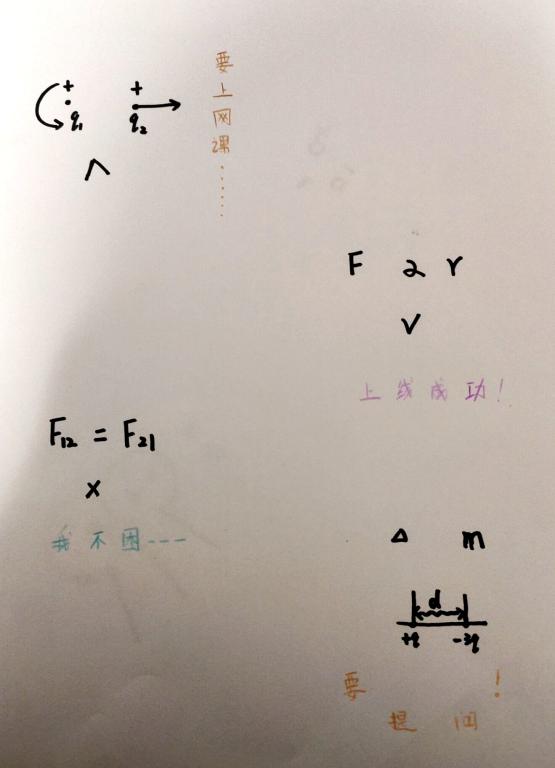 + +
q₁ q₂
要上网课……
∧
F a r
∨
上线成功!
F₁₂ = F₂₁
×
我不困---
Δ m
d
+q -3q
要 !
提问